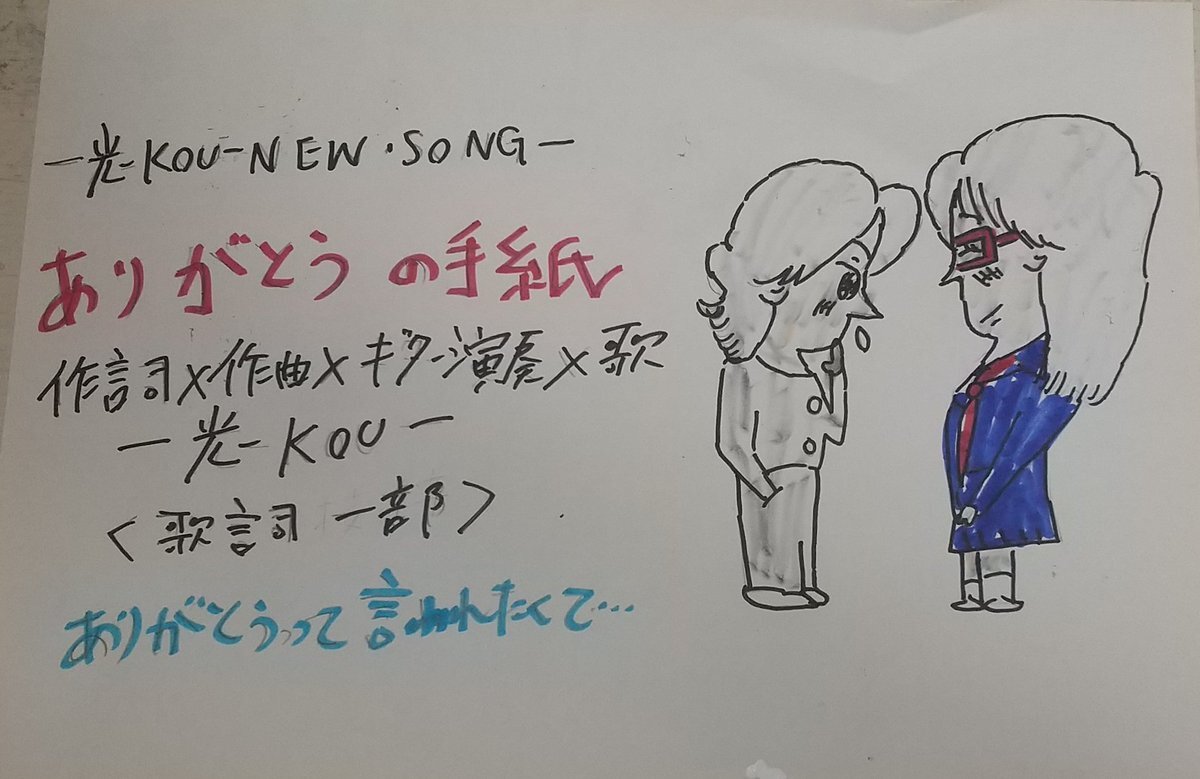 ー光-KOU-NEW・SONGー
ありがとうの手紙
作詞×作曲×ギター演奏×歌
ー光-KOUー
<歌詞一部>
ありがとうって言われたくて…